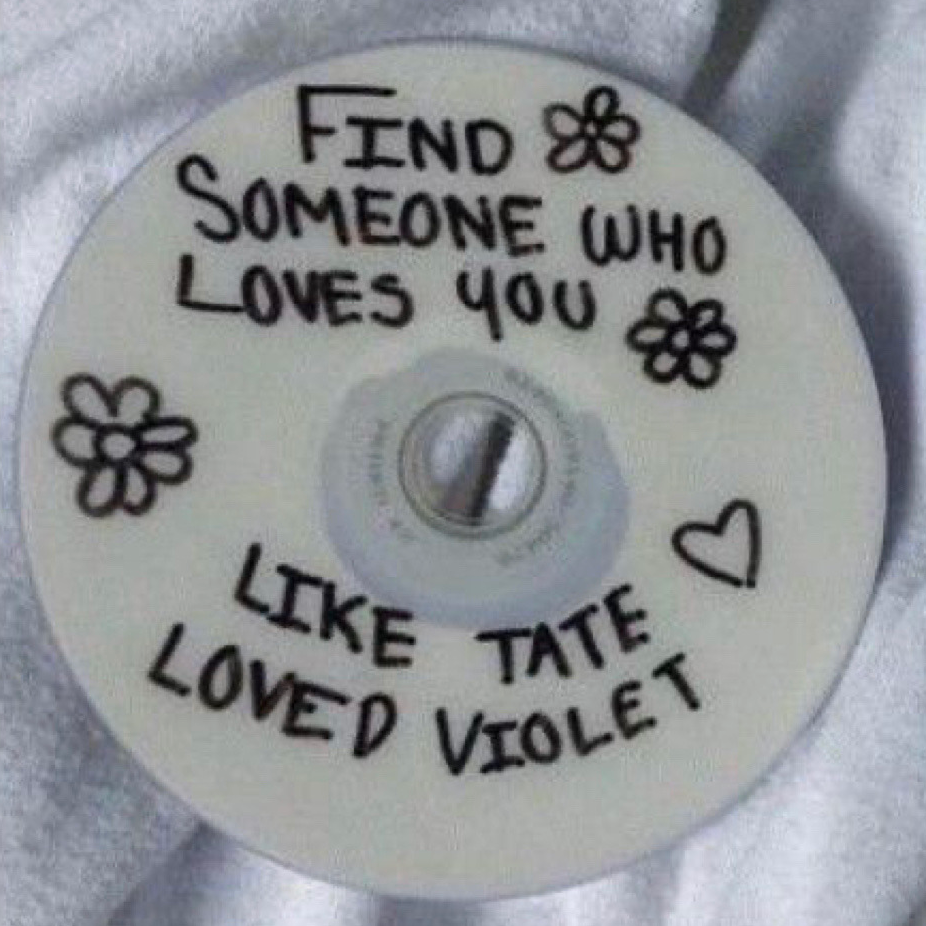 FIND
SOMEONE WHO
LOVES YOU
LIKE TATE
LOVED VIOLET